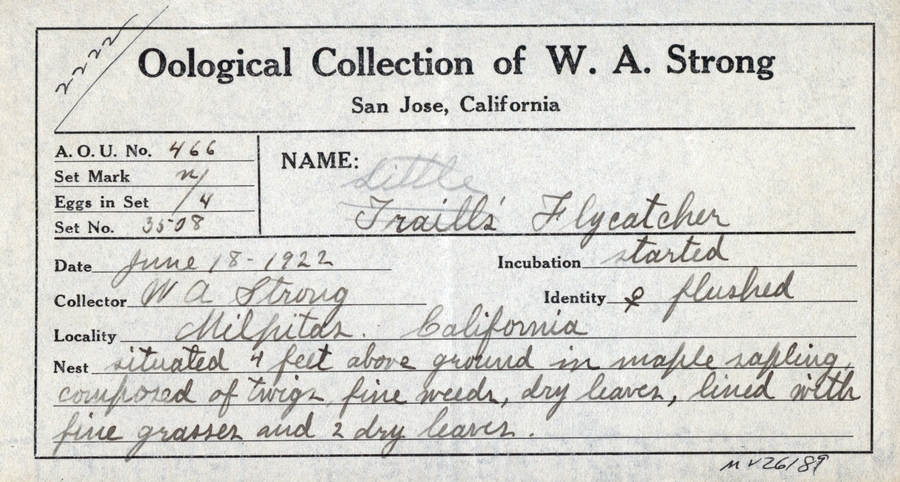 2225
Oological Collection of W. A. Strong
San Jose, California
A. O. U. No. 466
Set Mark n/
Eggs in Set /4
Set No. 3508
NAME:
Little
Traills' Flycatcher
Date June 18-1922
Incubation started
Collector W A Strong
Identity ♀ flushed
Locality Milpitas. California
Nest situated 4 feet above ground in maple sapling,
composed of twigs fine weeds, dry leaves, lined with
fine grasses and 2 dry leaves.
MV26189